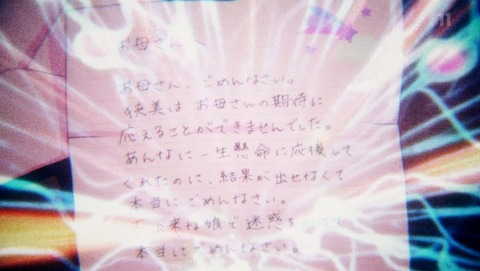 お母さんへ
お母さん、ごめんなさい。
狭美は お母さんの期待に
応えることができませんでした。
あんなに一生懸命に応援して
くれたのに、結果が出せなくて
本当にごめんなさい。
来な娘で迷惑を
本当にごめんなさい。